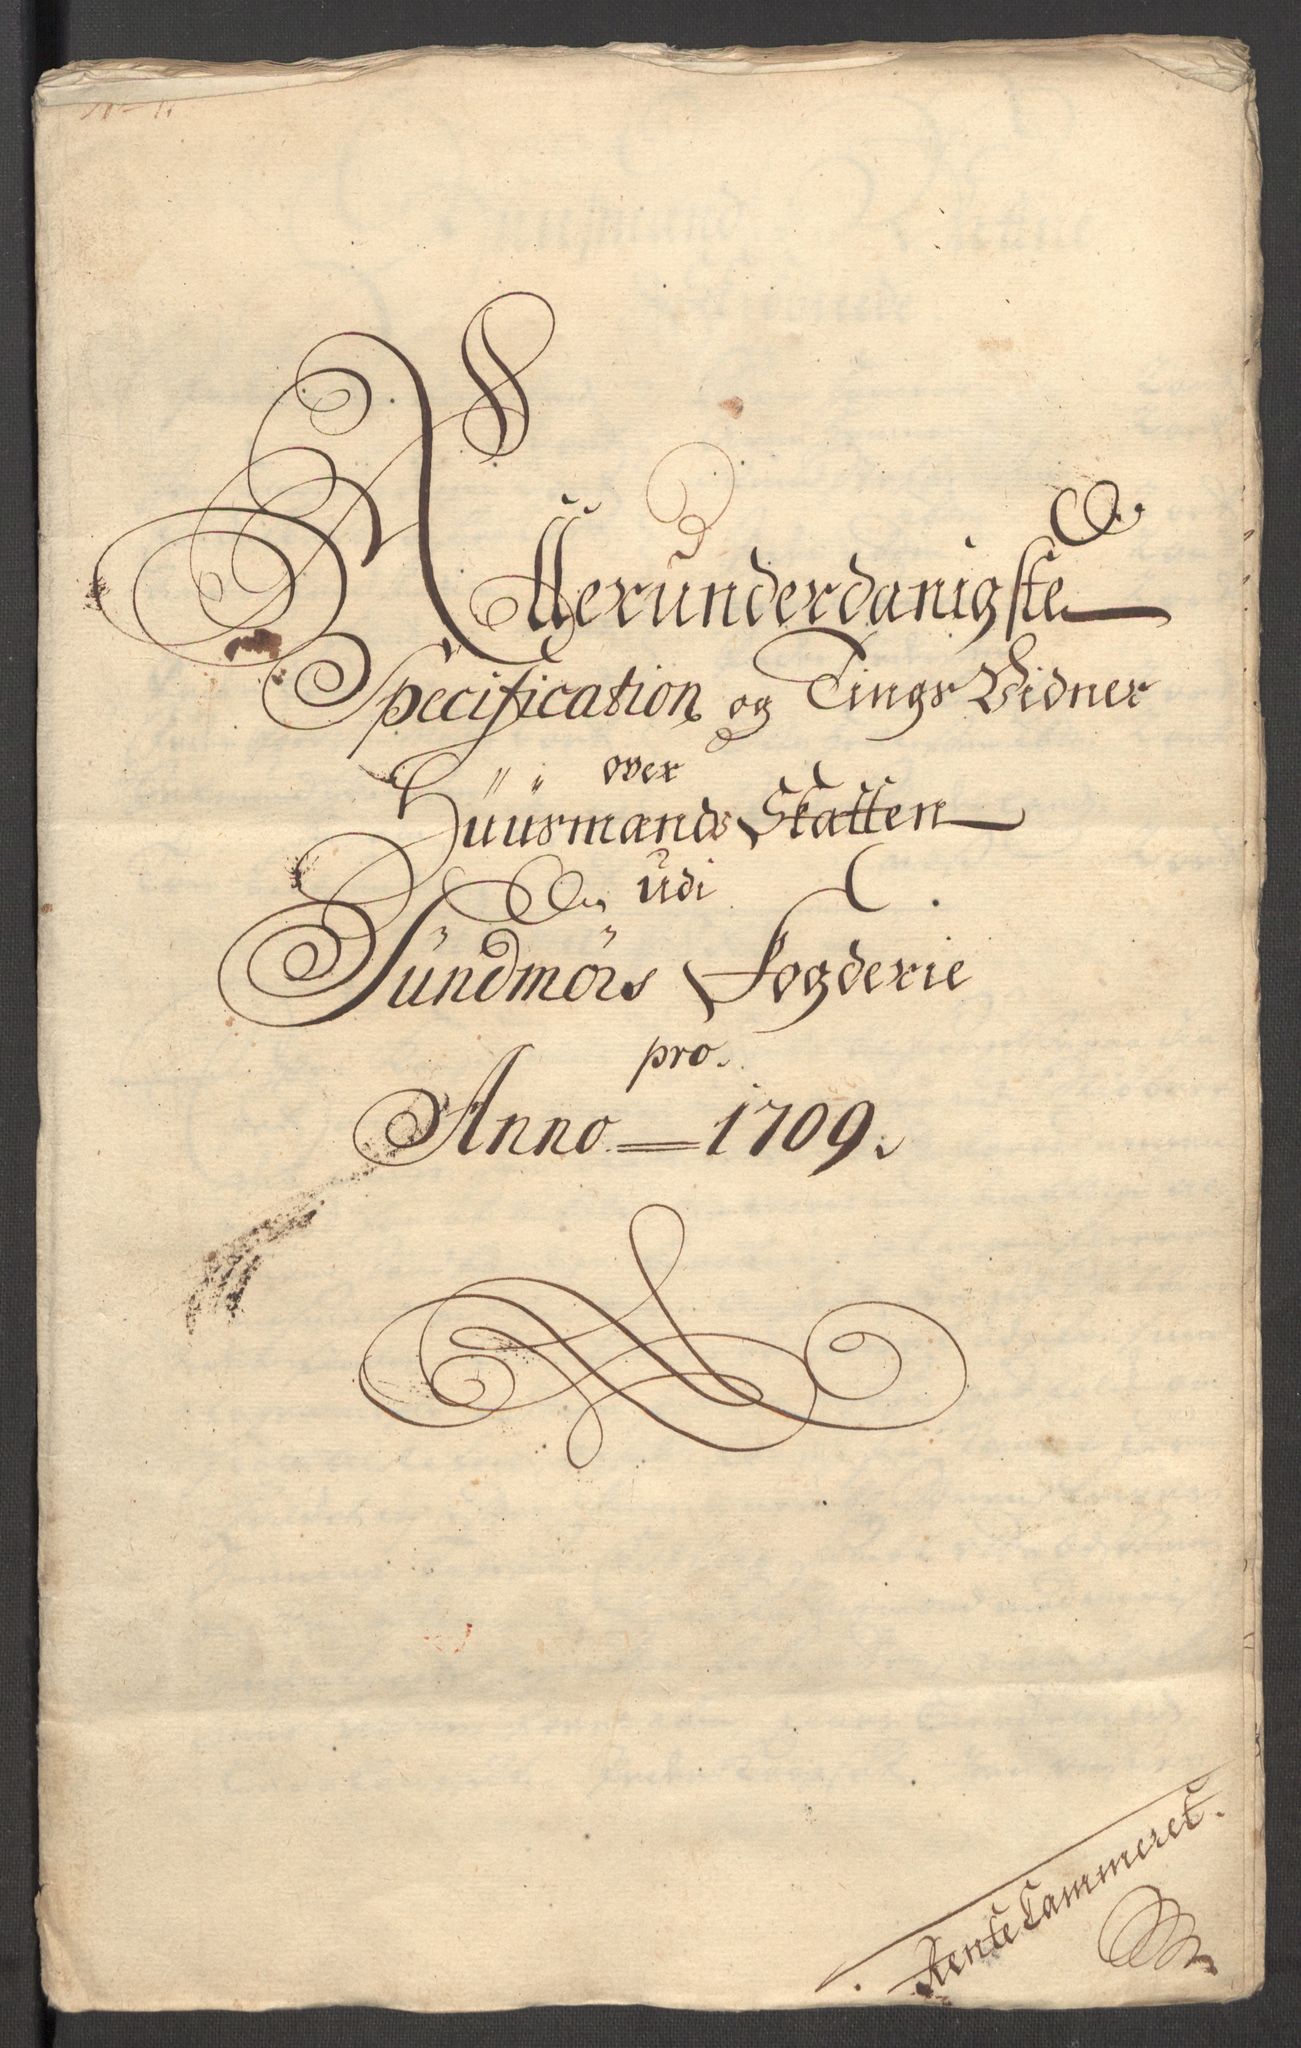 Allerunderdanigste
Specification og Tings Vidner
over
Huusmands Skatten
udi
Sundmørs Fogderie
pro.
Anno = 1709.
Rente Cammeret.